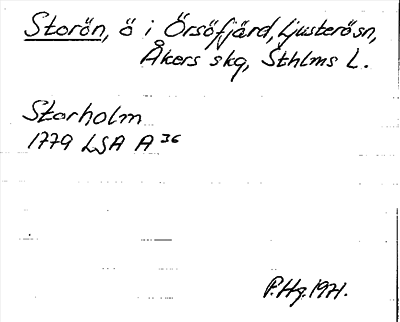 Storön, ö i Örsöfjärd, Ljusterösn,
Åkers skg, Sthlms L.
Storholm
1779 LSA A 36
P.Hg. 1971.